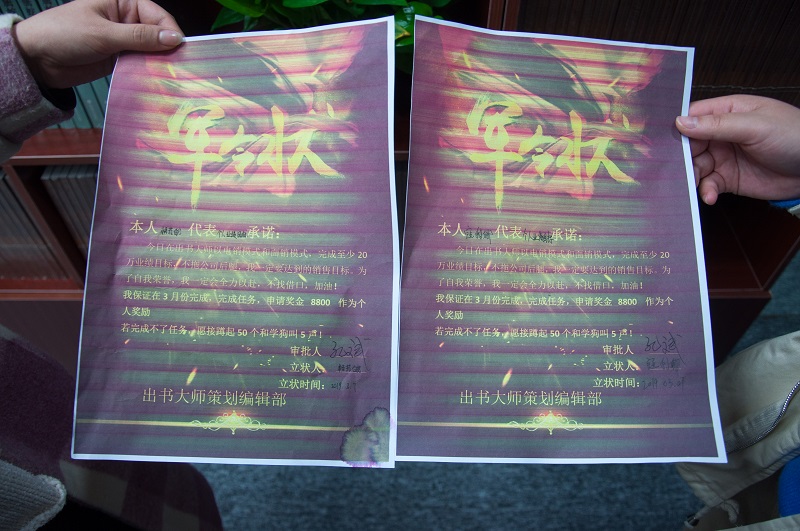 军令状
本人 代表 承诺：
今日在出书大师以电销模式和面销模式，完成至少 20
万业绩目标，不拖公司后腿，我一定要达到的销售目标。为
了自我荣誉，我一定会全力以赴，不找借口，加油！
我保证在 3 月份完成，完成任务，申请奖金 8800 作为个
人奖励
若完成不了任务，愿接蹲起 50 个和学狗叫 5 声！
审批人
立状人：
立状时间：
出书大师策划编辑部
军令状
本人 代表 承诺：
今日在出书大师以电销模式和面销模式，完成至少 20
万业绩目标，不拖公司后腿，我一定要达到的销售目标。为
了自我荣誉，我一定会全力以赴，不找借口，加油！
我保证在 3 月份完成，完成任务，申请奖金 8800 作为个
人奖励
若完成不了任务，愿接蹲起 50 个和学狗叫 5 声！
审批人
立状人：
立状时间：
出书大师策划编辑部